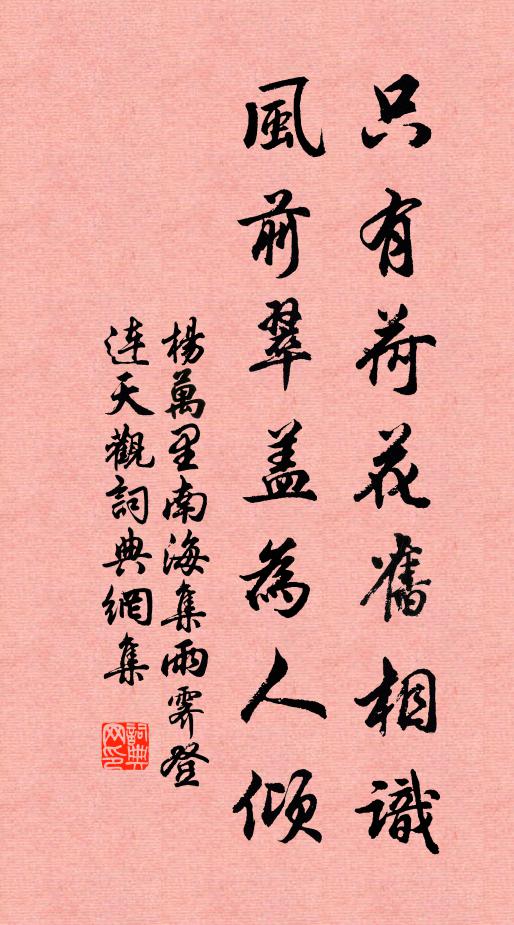 只有荷花舊相識
風前翠盖為人傾
楊萬里南海集雨霽登
連天觀詞典網集
詞典網印